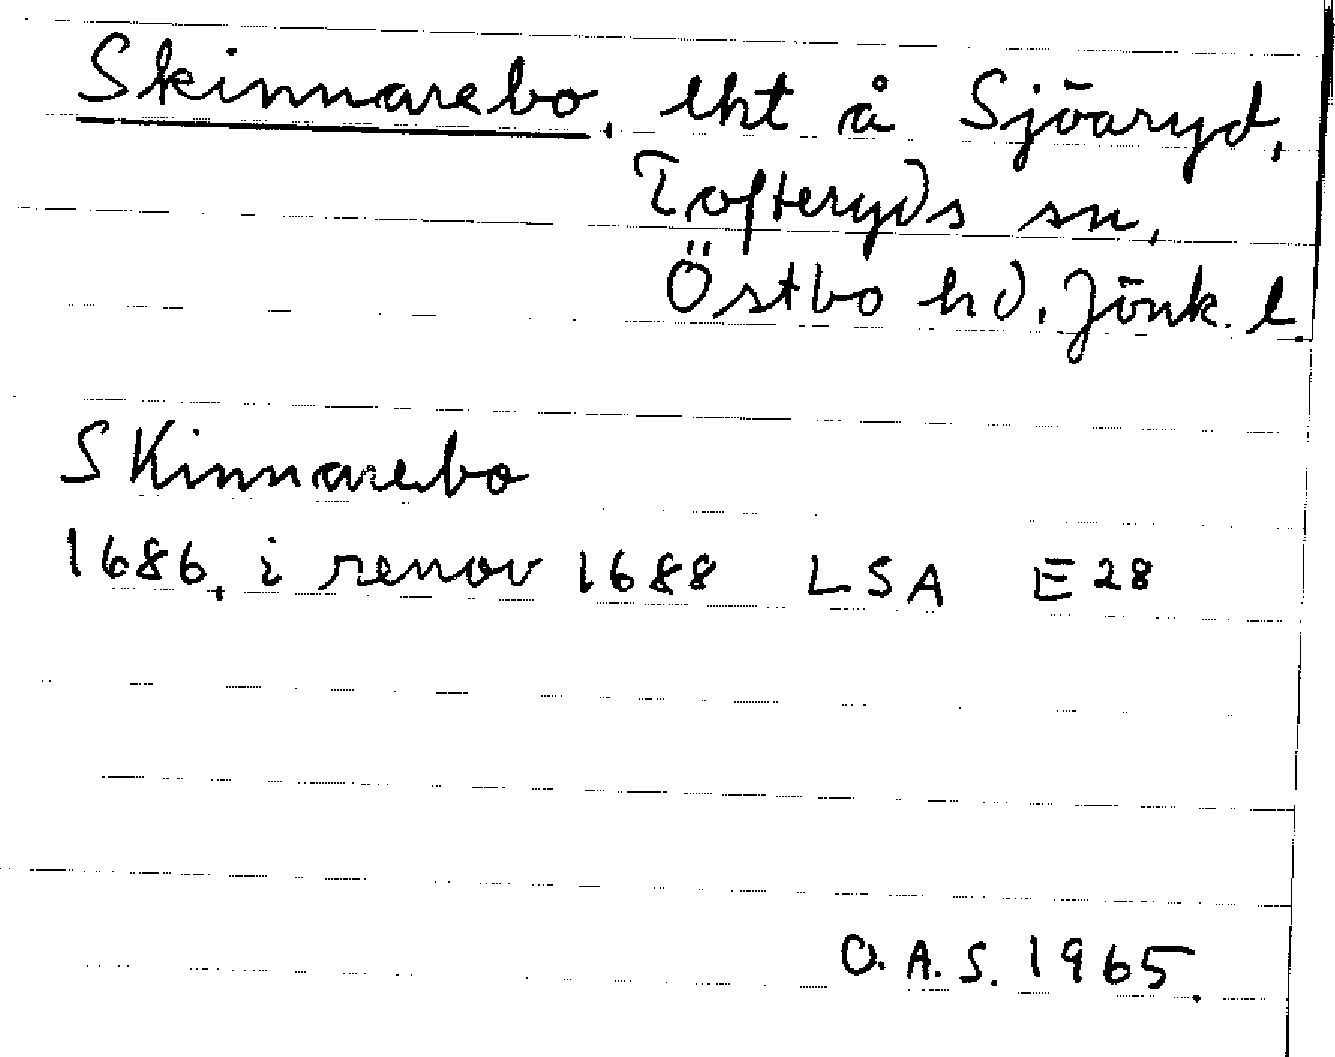 Skinnarebo, lht å Sjöaryd,
Tofteryds sn,
Östbo hd. Jönk. l.
Skinnarebo
1686, i renov 1688 LSA E28
O.A.S. 1965.